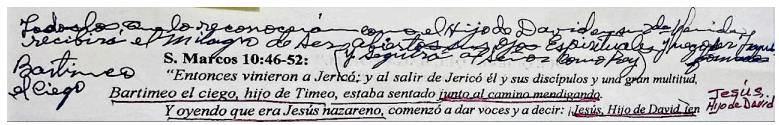 Todo lo reconocerá como el Hijo de David en su 2da Venida y
recibirá el Milagro de ser abiertos sus ojos Espirituales
y seguirá al Señor como Rey
Bartimeo
el Ciego
S. Marcos 10:46-52:
"Entonces vinieron a Jericó; y al salir de Jericó él y sus discípulos y una gran multitud,
Bartimeo el ciego, hijo de Timeo, estaba sentado junto al camino mendigando.
Y oyendo que era Jesús nazareno, comenzó a dar voces y a decir: ¡Jesús, Hijo de David, ten
Jesús,
Hijo de David